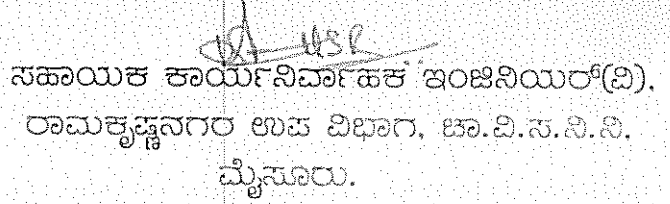 ಸಹಾಯಕ ಕಾರ್ಯನಿರ್ವಾಹಕ ಇಂಜಿನಿಯರ್(ವಿ),
ರಾಮಕೃಷ್ಣನಗರ ಉಪ ವಿಭಾಗ, ಚಾ.ವಿ.ಸ.ನಿ.ನಿ.
ಮೈಸೂರು.